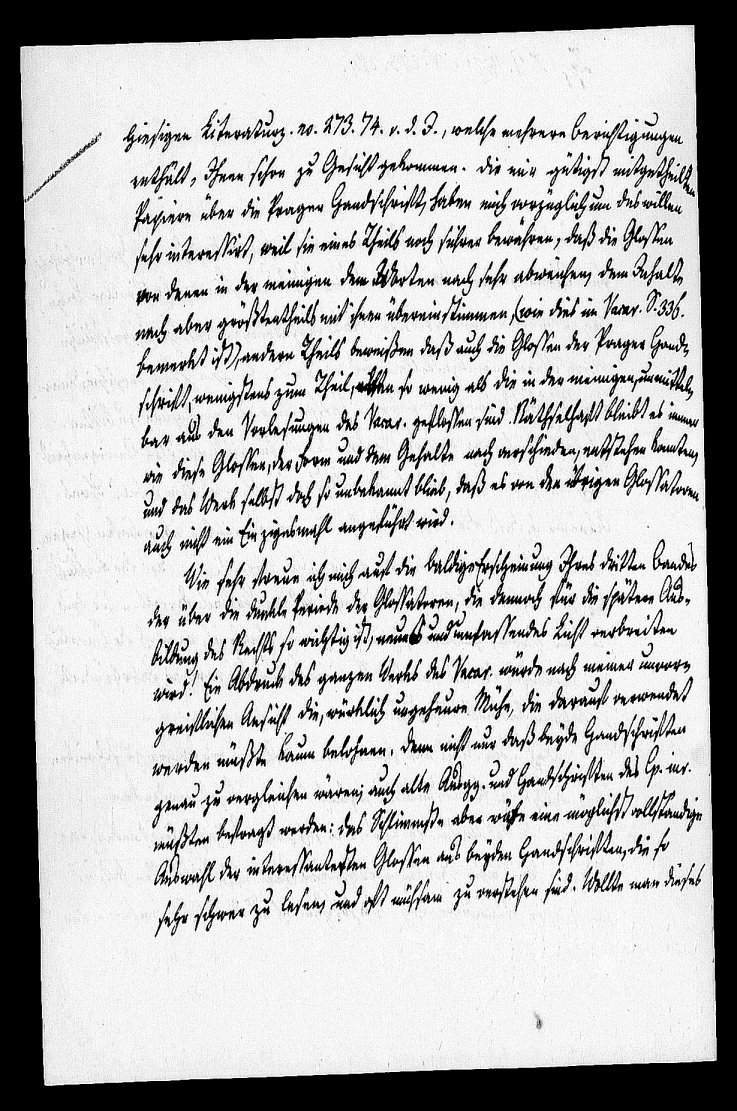 hiesigen Literaturz. no. 273. 74. v. d. J., welche mehrere Berichtigungen
enthält, Ihnen schon zu Gesicht gekommen. Die mir gütigst mitgetheilten
Papiere über die Prager Handschrift, haben mich vorzüglich um deswillen
sehr interessirt, weil sie eines Theils noch sichrer bewähren, daß die Glossen
von denen in der meinigen den Worten nach sehr abweichen, dem Inhalte
nach aber größtentheils mit ihnen übereinstimmen, (wie dies im Vacar. S. 336.
bemerkt ist), andern Theils beweißen daß auch die Glossen der Prager Hand-
schrift, wenigstens zum Theil, so wenig als die in der meinigen, unmittel-
bar aus den Vorlesungen des Vacar. geflossen sind. Räthselhaft bleibt es immer
wie diese Glossen, der Form und dem Gehalte nach verschieden, entstehen konnten,
und das Werk selbst doch so unbekannt blieb, daß es von den übrigen Glossatoren
auch nicht ein Einzigesmahl angeführt wird.
Wie sehr freue ich mich auf die baldige Erscheinung Ihres dritten Bandes
der über die dunkle Periode der Glossatoren, die dennoch für die spätere Aus-
bildung des Rechts so wichtig ist, neues und umfassendes Licht verbreiten
wird! Ein Abdruck des ganzen Werks des Vacar. würde nach meiner unvor-
greiflichen Ansicht die, würklich ungeheure Mühe, die darauf verwendet
werden müßte kaum belohnen. Denn nicht nur daß beyde Handschriften
genau zu vergleichen wären; auch alte Ausgg. und Handschriften des Cp. iur.
müßten befragt werden: das Schlimmste aber wäre eine möglichst vollständige
Auswahl der interessantesten Glossen aus beyden Handschriften, die so
sehr schwer zu lesen, und oft mühsam zu verstehen sind. Wollte man dieses